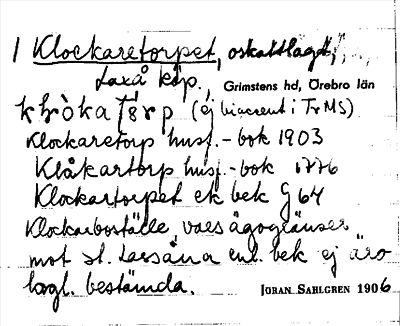 1 Klockaretorpet, oskattlagt,
Laxå köp., Grimstens hd, Örebro län
(ej biaccent i TvMS)
Klockaretorp husf.-bok 1903
Klåkartorp husf.-bok 1776
Klockartorpet ek bek G 64
Klockarboställe, vars ägogränser
mot st. Lassåna enl. bek ej äro
lagl. bestämda. JÖRAN SAHLGREN 1906